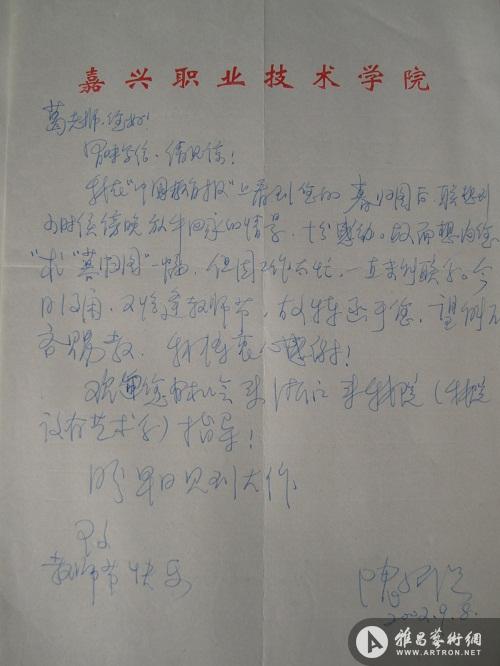 嘉兴职业技术学院
葛老师:您好!
冒昧写信,请见谅!
我在"中国教育报"上看到您的暮归图后联想到
小时候傍晚放牛回家的情景,十分感动。故而想向您
求"暮归图"一幅,但因工作太忙,一直未联系。今
日得闲,又恰逢教师节,故特函于您,望例不
吝赐教,我将衷心感谢!
欢迎您有机会来浙江来我院(我院
设有艺术系)指导!
盼早日见到大作
教师节快乐
陈
2002.9.8.
雅昌藝術網
WWW.ARTRON.NET